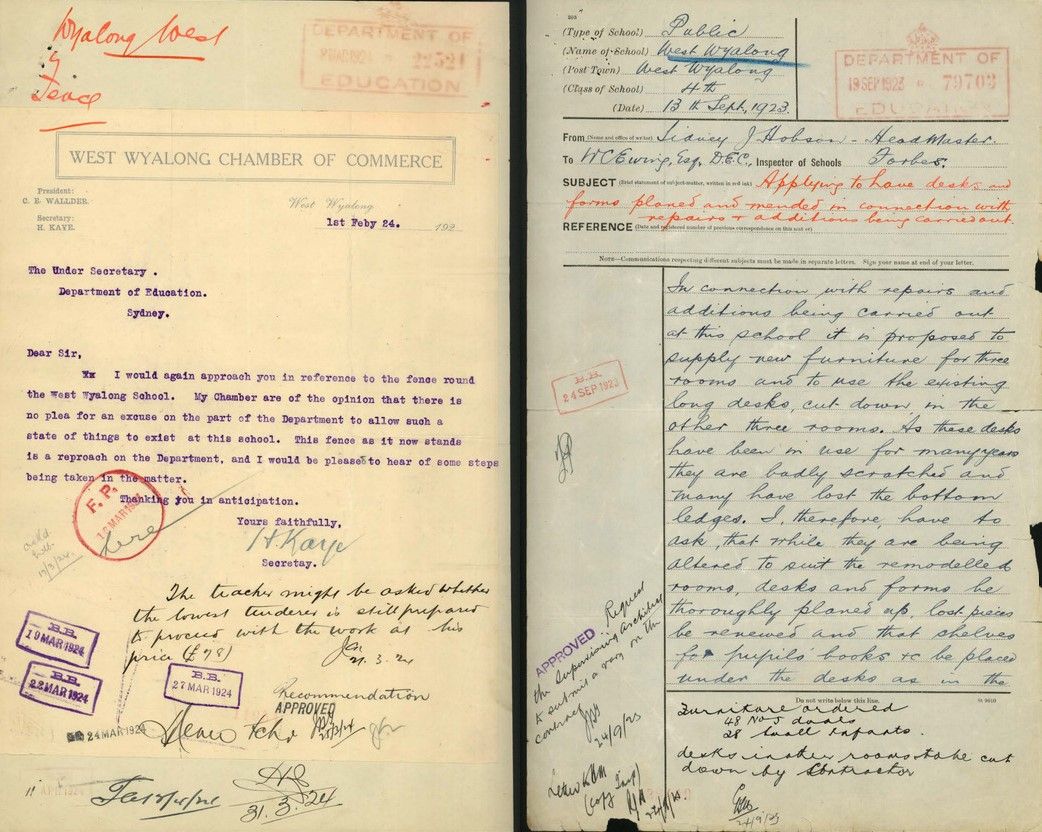 Wyalong West
Fence
DEPARTMENT OF
22521
EDUCATION
WEST WYALONG CHAMBER OF COMMERCE
President:
C. E. WALLDER.
Secretary:
H. KAYE.
West Wyalong
1st Feby 24. 192
The Under Secretary .
Department of Education.
Sydney.
Dear Sir,
I would again approach you in reference to the fence round
the West Wyalong School. My Chamber are of the opinion that there is
no plea for an excuse on the part of the Department to allow such a
state of things to exist at this school. This fence as it now stands
is a reproach on the Department, and I would be please to hear of some steps
being taken in the matter.
Thanking you in anticipation.
F. P.
MAR 1924
Yours faithfully,
H. Kaye
Secretay.
The teacher might be asked whether
the lowest tenderer is still prepared
to proceed with the work at his
price (£78)
21.3.24
B.B.
19 MAR 1924
B.B.
22 MAR 1924
B.B.
27 MAR 1924
Recommendation
APPROVED
24 MAR 1924
31.3.24
203
(Type of School) Public
(Name of School) West Wyalong
(Post Town) West Wyalong
(Class of School) 4th
(Date) 13th Sept, 1923
DEPARTMENT OF
19 SEP 1923 79702
EDUCATION
From (Name and office of writer) Sidney J. Hobson - Head Master.
To W C Ewing, Esq, D.E.C., Inspector of Schools Forbes.
SUBJECT (Brief statement of subject-matter, written in red ink) Applying to have desks and
forms planed and mended in connection with
repairs & additions being carried out
REFERENCE (Date and registered number of previous correspondence on this text or)
NOTE—Communications respecting different subjects must be made in separate letters. Sign your name at end of your letter.
In connection with repairs and
additions being carried out
at this school it is proposed to
supply new furniture for three
rooms and to use the existing
long desks, cut down in the
other three rooms. As these desks
have been in use for many years
they are badly scratched and
many have lost the bottom
ledges. I, therefore, have to
ask, that while they are being
altered to suit the remodelled
rooms, desks and forms be
thoroughly planed up, lost pieces
be renewed and that shelves
for pupils' books &c be placed
under the desks as in the
B.B.
24 SEP 1923
APPROVED Request
the supervising architect
to submit a vary on the
contract
24/9/23
Do not write below this line.
Furniture ordered
48 No 5 duals
28 small infants.
desks in other rooms to be cut
down by Contractor
24/9/23